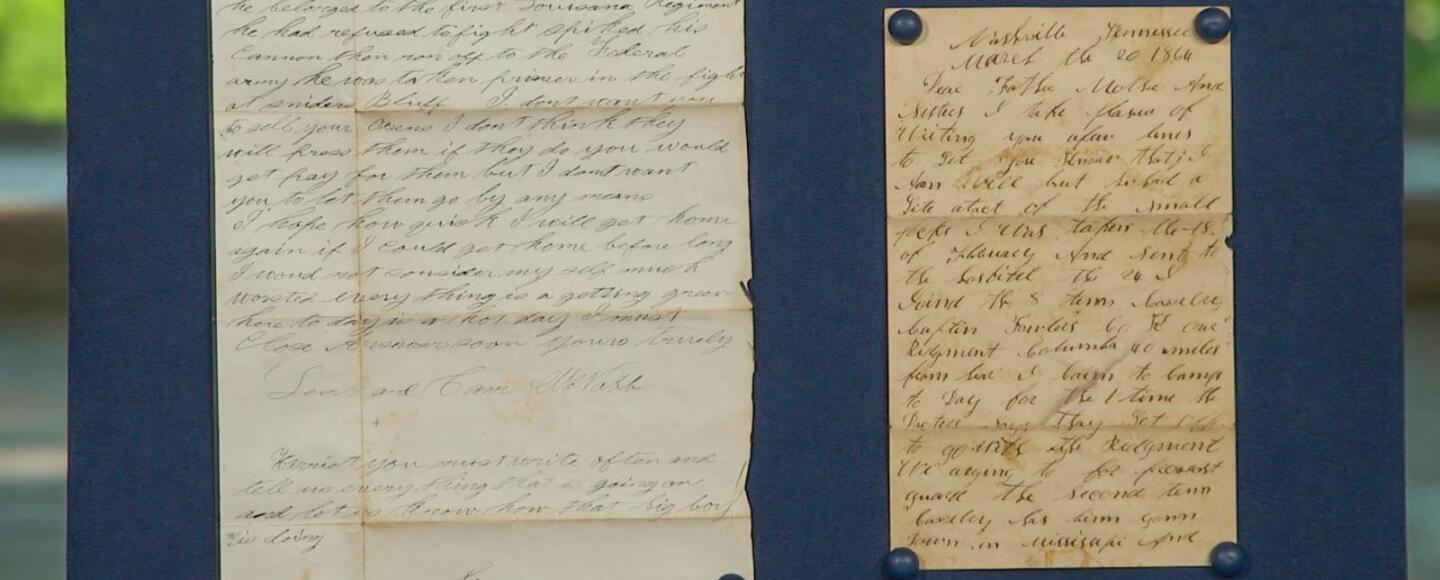 he belonged to the first Louisana Regiment
he had refused to fight spiked his
Cannon then ron off to the Federal
army he was taken prisner in the fight
at sniders Bluff I dont want you
to sell your Oxens I don't think they
will press them if they do you would
get pay for them but I dont want
you to let them go by any means
I hope how quick I will get home
again if I could get home before long
I woud not consider my self much
worsted every thing is a getting green
here to day is a hot day I must
Close Answer soon yours truely
and Cam McNabb
Harriet you must write often and
tell us every thing that is going on
and let us know how that big boy
is doing
Nashville Tennessee
March the 20 1864
Dear Father Mother And
Sisters I take plasur of
Writing you a few lines
to Let you Know that I
Am Well but I had a
Lite atact of the small
I Was taken the 18
of Febuary And Sent to
the Hospitel the 24 I
Joind the 8 tenn Cavelry
Captin Co
Ridgment Columba 40 miles
from here I to Camp
to Day for the 1 time the
says they Let
to go With the Ridgment
We agoing to for
guard the Second tenn
Cavelry has binn gown
Down in Missisapi And